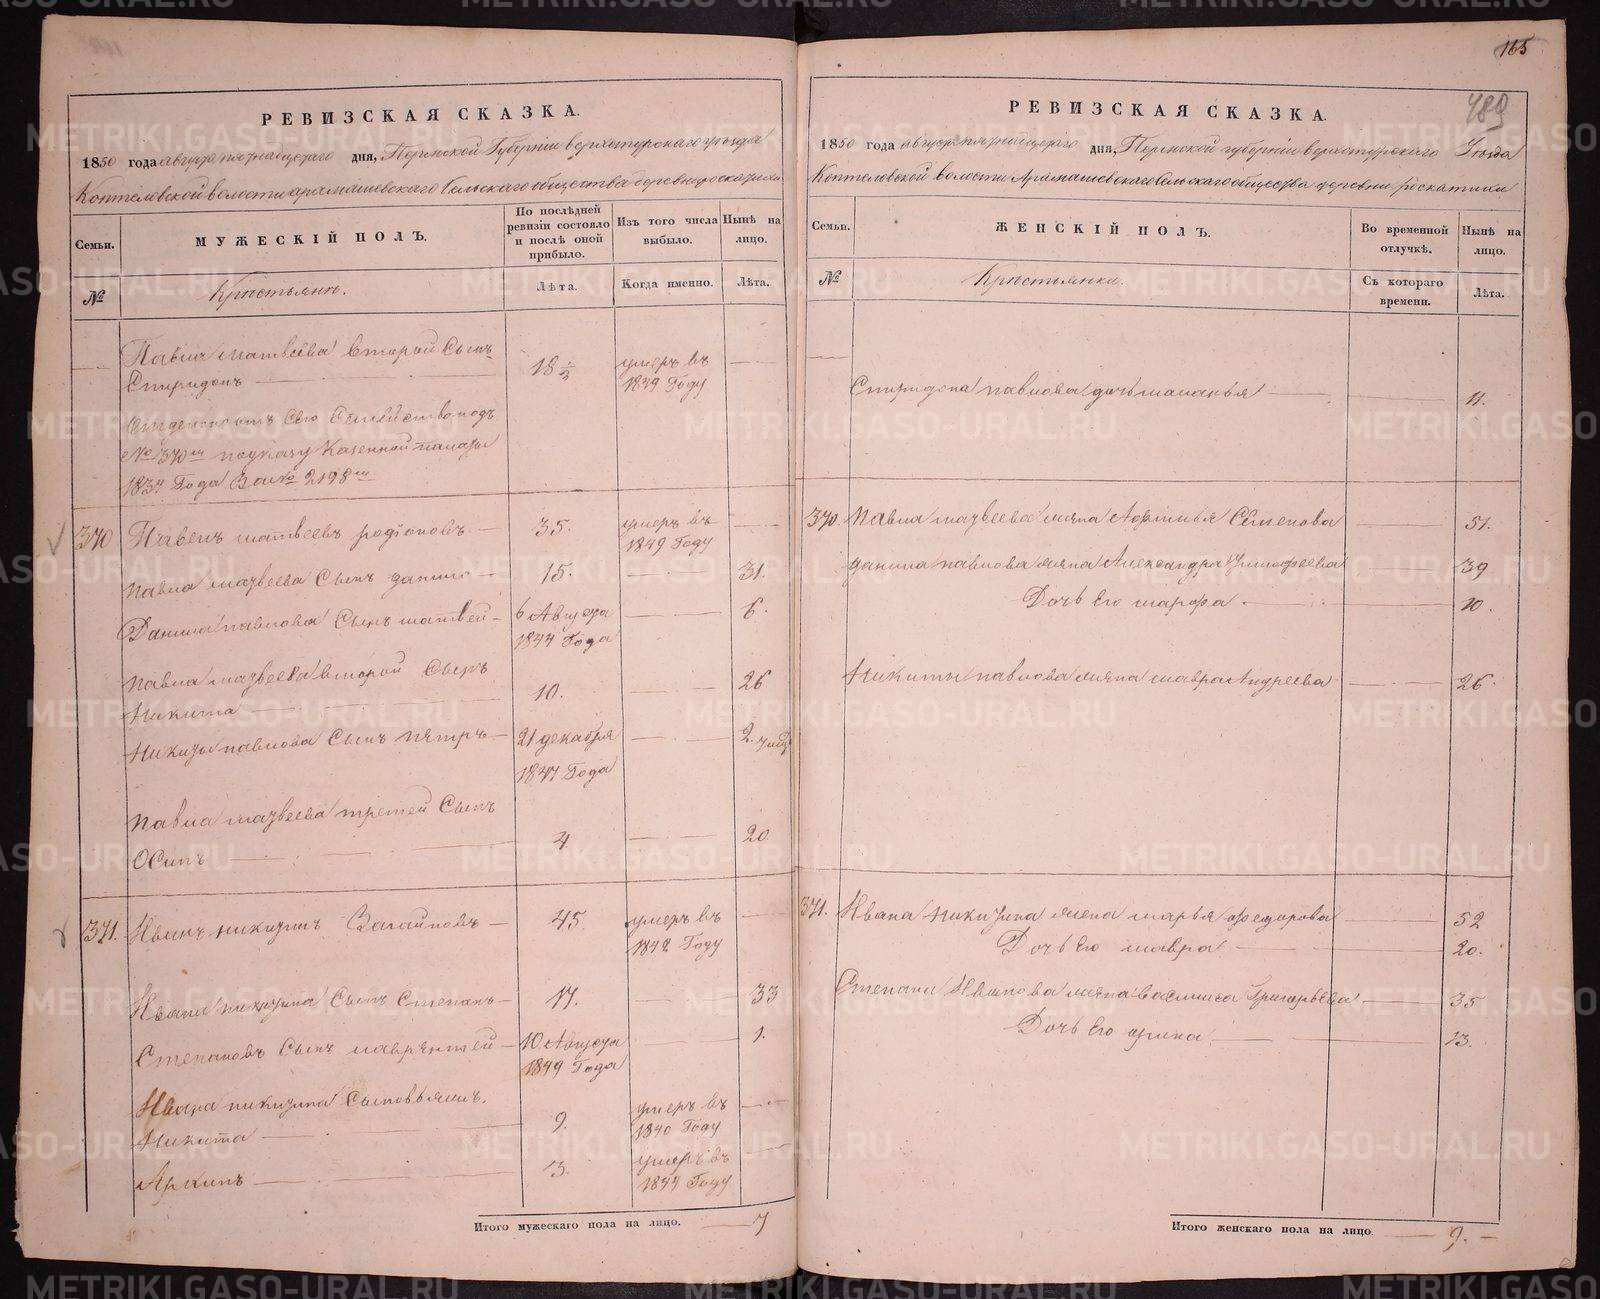 165
489
РЕВИЗСКАЯ СКАЗКА.
1850 года августа пятнадцатаго дня, Пермской Губернии верхотурскаго уезда
Коптеловской волости арамашевскаго Сельскаго общества деревни роскатихи
Семьи. МУЖЕСКІЙ ПОЛЪ. По послѣдней ревизіи состояло и послѣ оной прибыло. Изъ того числа выбыло. Нынѣ на лицо.
№ Крестьянъ. Лѣта. Когда именно. Лѣта.
Павла матвеева второй Сынъ
Спиридонъ — 18 ½ умеръ въ 1849 Году —
Сево Семействоподъ
№ 370 м поуказу Казенной палаты
1837 Года За № 2198 м
370 Павелъ матвеевъ родіоновъ — 35. умеръ въ 1849 Году —
Павла матвеева Сынъ данило — 15. — 31.
Данила павлова Сынъ матвей — 6 Августа 1844 Года — 6.
Павла матвеева второй Сынъ
Никита — 10. — 26
Никиты павлова Сынъ пятръ — 21 декабря 1847 Года — 2.
Павла матвеева третей Сынъ
Осипъ — 4 — 20
371. Иванъ никитинъ — 45. умеръ въ 1842 Году —
Ивана никитина Сынъ Степанъ — 17. — 33
Степановъ Сынъ лаврентей — 10 Августа 1849 Года — 1.
Ивана никитина Сыновьями.
Никита — 9. умеръ въ 1840 Году —
Архипъ — 3. умеръ въ 1844 Году —
Итого мужескаго пола на лицо. — 7
РЕВИЗСКАЯ СКАЗКА.
1850 года августа пятнадцатаго дня, Пермской губернии верхотурскаго Уезда
Коптеловской волости Арамашевскаго Сельскаго общества деревни роскатихи
Семьи. ЖЕНСКІЙ ПОЛЪ. Во временной отлучкѣ. Нынѣ на лицо.
№ Крестьянки. Съ котораго времени. Лѣта.
Спиридона павлова дочь маланья — 11.
370. Павла матвеева жена Семенова — 51.
данила павлова жена Александра тимофеева — 39
Дочь Его марфа — 10.
Никиты павлова жена мавра Андреева — 26.
371. Ивана никитина жена марья федорова — 52
Дочь Его мавра — 20.
Степана Иванова жена василиса Григорьева — 35
Дочь Его — 13.
Итого женскаго пола на лицо. — 9. —